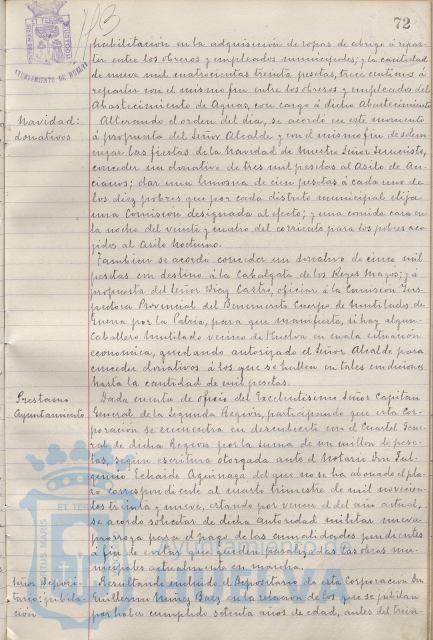 72
AYUNTAMIENTO DE HUELVA
habilitación en la adquisición de ropas de abrigo á repar-
tir entre los obreros y empleados municipales; y la cantidad
de nueve mil cuatrocientas treinta pesetas, trece centimos á
repartir con el mismo fin entre los obreros y empleados del
Abastecimiento de Aguas, con cargo á dicho Abastecimiento
Navidad:
donativos
Alterando el orden del dia, se acordó en este momento
á propuesta del Señor Alcalde y con el mismo fin de solem-
nizar las fiestas de la Navidad de Nuestro Señor Jesucristo,
conceder un donativo de tres mil pesetas al Asilo de An-
cianos; dar una limosna de cien pesetas á cada uno de
los diez pobres que por cada distrito municipal elija
una Comisión designada al efecto; y una comida cara en
la noche del veinte y cuatro del corriente para los pobres aco-
gidos al Asilo Nocturno.
Tambien se acordó conceder un donativo de cinco mil
pesetas con destino á la Cabalgata de los Reyes Magos; y á
propuesta del Señor Diaz Castro, oficiar á la Comisión Ins-
pectora Provincial del Benemerito Cuerpo de Mutilados de
Guerra por la Patria, para que manifieste, si hay algun
Caballero Mutilado vecino de Huelva en mala situación
economica, quedando autorizado el Señor Alcalde para
conceder donativos á los que se hallen en tales condiciones
hasta la cantidad de mil pesetas.
Prestamo
Ayuntamiento
Dada cuenta de oficio del Excelentisimo Señor Capitan
General de la Segunda Región, participando que esta Cor-
poración se encuentra en descubierto con el Cuartel Gene-
ral de dicha Región por la suma de un millon de pese-
tas, según escritura otorgada ante el Notario Don Ful-
gencio Echaide Aguinaga del que no se ha abonado el pla-
zo correspondiente al cuarto trimestre de mil novecien-
tos treinta y nueve, estando por vencer el del año actual,
se acordó solicitar de dicha autoridad militar nueva
prorroga para el pago de las anualidades pendientes
á fin de evitar que queden paralizadas las obras mu-
nicipales actualmente en marcha.
Señor Deposi-
tario: jubila-
ción
Resultando incluido el Depositario de esta Corporación Don
Guillermo Nuñez Baez en la relación de los que se jubilan
por haber cumplido setenta años de edad, antes del trein-